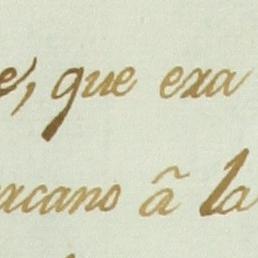 e, que exa
acano â la